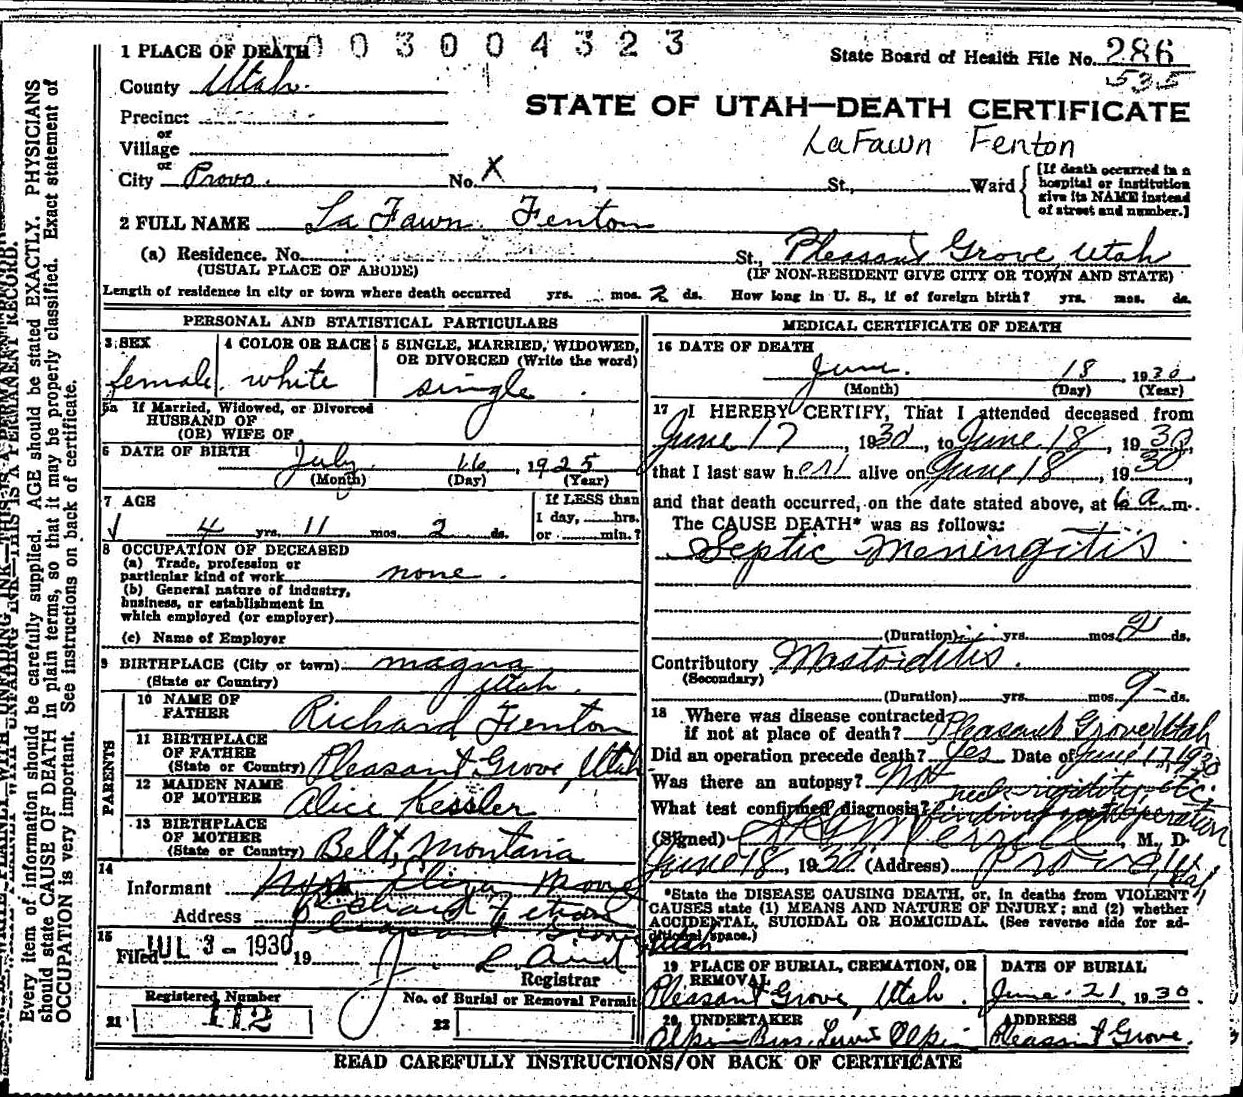 1 PLACE OF DEATH 003004323
State Board of Health File No. 286
535
County Utah.
STATE OF UTAH—DEATH CERTIFICATE
Precinct
LaFawn Fenton
or
Village
or
City Provo. No. X, St., Ward
[If death occurred in a hospital or institution give its NAME instead of street and number.]
2 FULL NAME La Fawn Fenton
(a) Residence. No. St., Pleasant Grove, Utah
(USUAL PLACE OF ABODE) (IF NON-RESIDENT GIVE CITY OR TOWN AND STATE)
Length of residence in city or town where death occurred yrs. mos. 2 ds. How long in U. S., if of foreign birth? yrs. mos. ds.
PERSONAL AND STATISTICAL PARTICULARS
3 SEX
female
4 COLOR OR RACE
white
5 SINGLE, MARRIED, WIDOWED,
OR DIVORCED (Write the word)
single
5a If Married, Widowed, or Divorced
HUSBAND OF
(OR) WIFE OF
6 DATE OF BIRTH
July 16, 1925
(Month) (Day) (Year)
7 AGE
4 yrs. 11 mos. 2 ds.
If LESS than
1 day, hrs.
or min.?
8 OCCUPATION OF DECEASED
(a) Trade, profession or
particular kind of work none.
(b) General nature of industry,
business, or establishment in
which employed (or employer)
(c) Name of Employer
9 BIRTHPLACE (City or town) magna
(State or Country) Utah.
PARENTS
10 NAME OF
FATHER Richard Fenton
11 BIRTHPLACE
OF FATHER
(State or Country) Pleasant Grove, Utah
12 MAIDEN NAME
OF MOTHER Alice Kessler
13 BIRTHPLACE
OF MOTHER
(State or Country) Belt, Montana
14
Informant Mrs. Eliza
Richard Fenton
Address Pleasant Grove
Utah
15
Filed JUL 3 - 1930 19
Registrar
Registered Number
21 112
No. of Burial or Removal Permit
22
MEDICAL CERTIFICATE OF DEATH
16 DATE OF DEATH
June 18 1930
(Month) (Day) (Year)
17 I HEREBY CERTIFY, That I attended deceased from
June 17, 1930, to June 18, 1930,
that I last saw her alive on June 18, 1930,
and that death occurred, on the date stated above, at 6 a.m.
The CAUSE DEATH* was as follows:
Septic Meningitis
(Duration) yrs. mos. 2 ds.
Contributory Mastoiditis.
(Secondary)
(Duration) yrs. mos. 9 ds.
18 Where was disease contracted
if not at place of death? Pleasant Grove Utah
Did an operation precede death? Yes Date of June 17, 1930
Was there an autopsy? Not
neck rigidity, etc.
What test confirmed diagnosis? findings at operation
(Signed) Merrill, M. D.
June 18, 1930 (Address) Provo, Utah
*State the DISEASE CAUSING DEATH, or, in deaths from VIOLENT
CAUSES state (1) MEANS AND NATURE OF INJURY; and (2) whether
ACCIDENTAL, SUICIDAL OR HOMICIDAL. (See reverse side for ad-
ditional space.)
19 PLACE OF BURIAL, CREMATION, OR
REMOVAL
Pleasant Grove, Utah.
DATE OF BURIAL
June 21 1930
20 UNDERTAKER
ADDRESS
Pleasant Grove.
READ CAREFULLY INSTRUCTIONS ON BACK OF CERTIFICATE
Every item of information should be carefully supplied. AGE should be stated EXACTLY. PHYSICIANS
should state CAUSE OF DEATH in plain terms, so that it may be properly classified. Exact statement of
OCCUPATION is very important. See instructions on back of certificate.